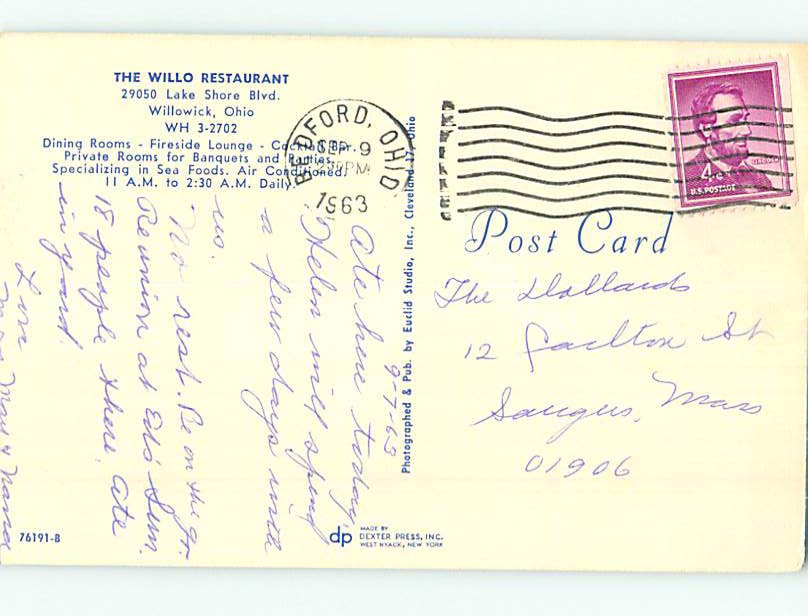 THE WILLO RESTAURANT
29050 Lake Shore Blvd.
Willowick, Ohio
WH 3-2702
Dining Rooms - Fireside Lounge - Cocktail Bar.
Private Rooms for Banquets and Parties.
Specializing in Sea Foods. Air Conditioned.
11 A.M. to 2:30 A.M. Daily.
BEDFORD, OHIO
SEP 9
PM
1963
4¢
LINCOLN
U.S. POSTAGE
Post Card
9-7-63
Ate here today.
Helen will spend
a few days with
us.
No rest. Be on the go.
Reunion at Ed's Sun.
18 people there. Ate
in yard.
Mary &
The Hollards
12 St
Saugus, Mass
01906
Photographed & Pub. by Euclid Studio, Inc., Cleveland 17, Ohio
76191-B
dp
MADE BY
DEXTER PRESS, INC.
WEST NYACK, NEW YORK